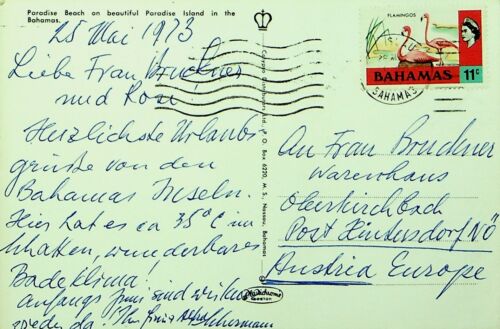 Paradise Beach on beautiful Paradise Island in the
Bahamas.
25 Mai 1973
Liebe Frau Bruckner
und Rosi
Herzlichste Urlaubs
grüße von den
Bahamas Inseln.
Hier hat es ca 35°C im
Schatten, wunderbares
Badeklima!
anfangs Juni sind wir
wieder da! Ihre
FLAMINGOS
BAHAMAS 11c
BAHAMAS
An Frau Bruckner
Warenhaus
Oberkirchbach
Post Hintersdorf NÖ
Austria Europe
P. O. Box 6220, M. S., Nassau, Bahamas
Plastichrome